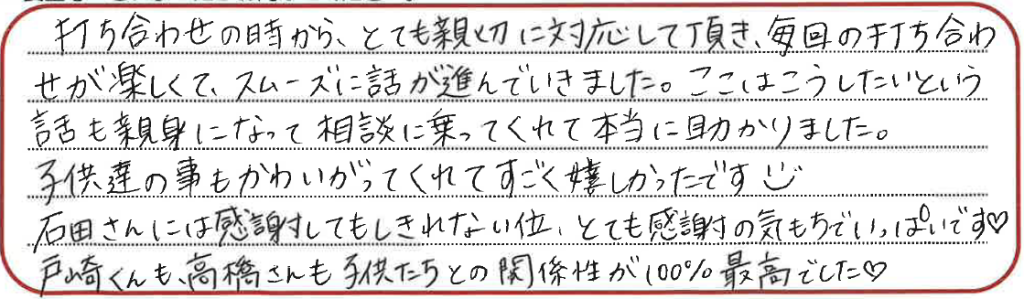 打ち合わせの時から、とても親切に対応して頂き、毎回の打ち合わ
せが楽しくて、スムーズに話が進んでいきました。ここはこうしたいという
話も親身になって相談に乗ってくれて本当に助かりました。
子供達の事もかわいがってくれてすごく嬉しかったです
石田さんには感謝してもしきれない位、とても感謝の気もちでいっぱいです♡
戸崎くんも、高橋さんも子供たちとの関係性が100%最高でした♡